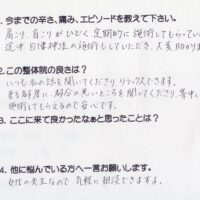 1. 今までの辛さ、痛み、エピソードを教えて下さい。
肩こり、首こりがひどく定期的に施術してもらってい
途中 自律神経の施術もしていただき、大変助かりま
2. この整体院の良さは？
いつもの話を聞いてくださり、リラックスできます。
来る度に、具合の悪いところを聞いてくださり、
施術してもらえるので安心です。
3. ここに来て良かったなぁと思ったことは？
4. 他に悩んでいる方へ一言お願いします。
女性の先生なので 気軽に相談できますよ。